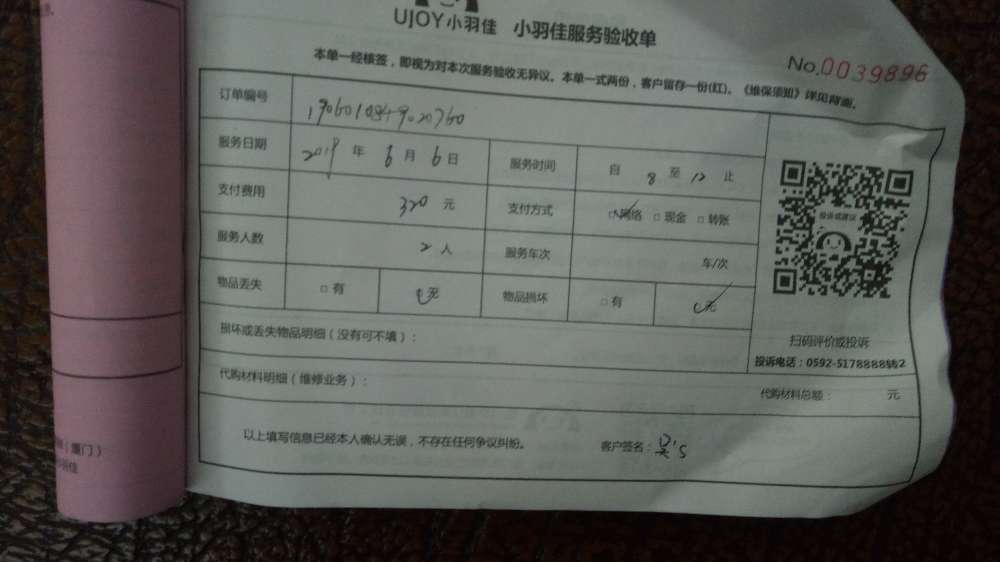 UJOY小羽佳 小羽佳服务验收单
本单一经核签，即视为对本次服务验收无异议。本单一式两份，客户留存一份(红)。《维保须知》详见背面。
No.0039896
订单编号
服务日期 2019 年 6 月 6 日 服务时间 自 8 至 12 止
支付费用 320 元 支付方式 □网络 □现金 □转账
服务人数 2 人 服务车次 车/次
物品丢失 □有 □无 物品损坏 □有 □无
损坏或丢失物品明细（没有可不填）：
代购材料明细（维修业务）： 代购材料总额： 元
以上填写信息已经本人确认无误，不存在任何争议纠纷。 客户签名：
投诉或建议
扫码评价或投诉
投诉电话：0592-5178888转2
（厦门）